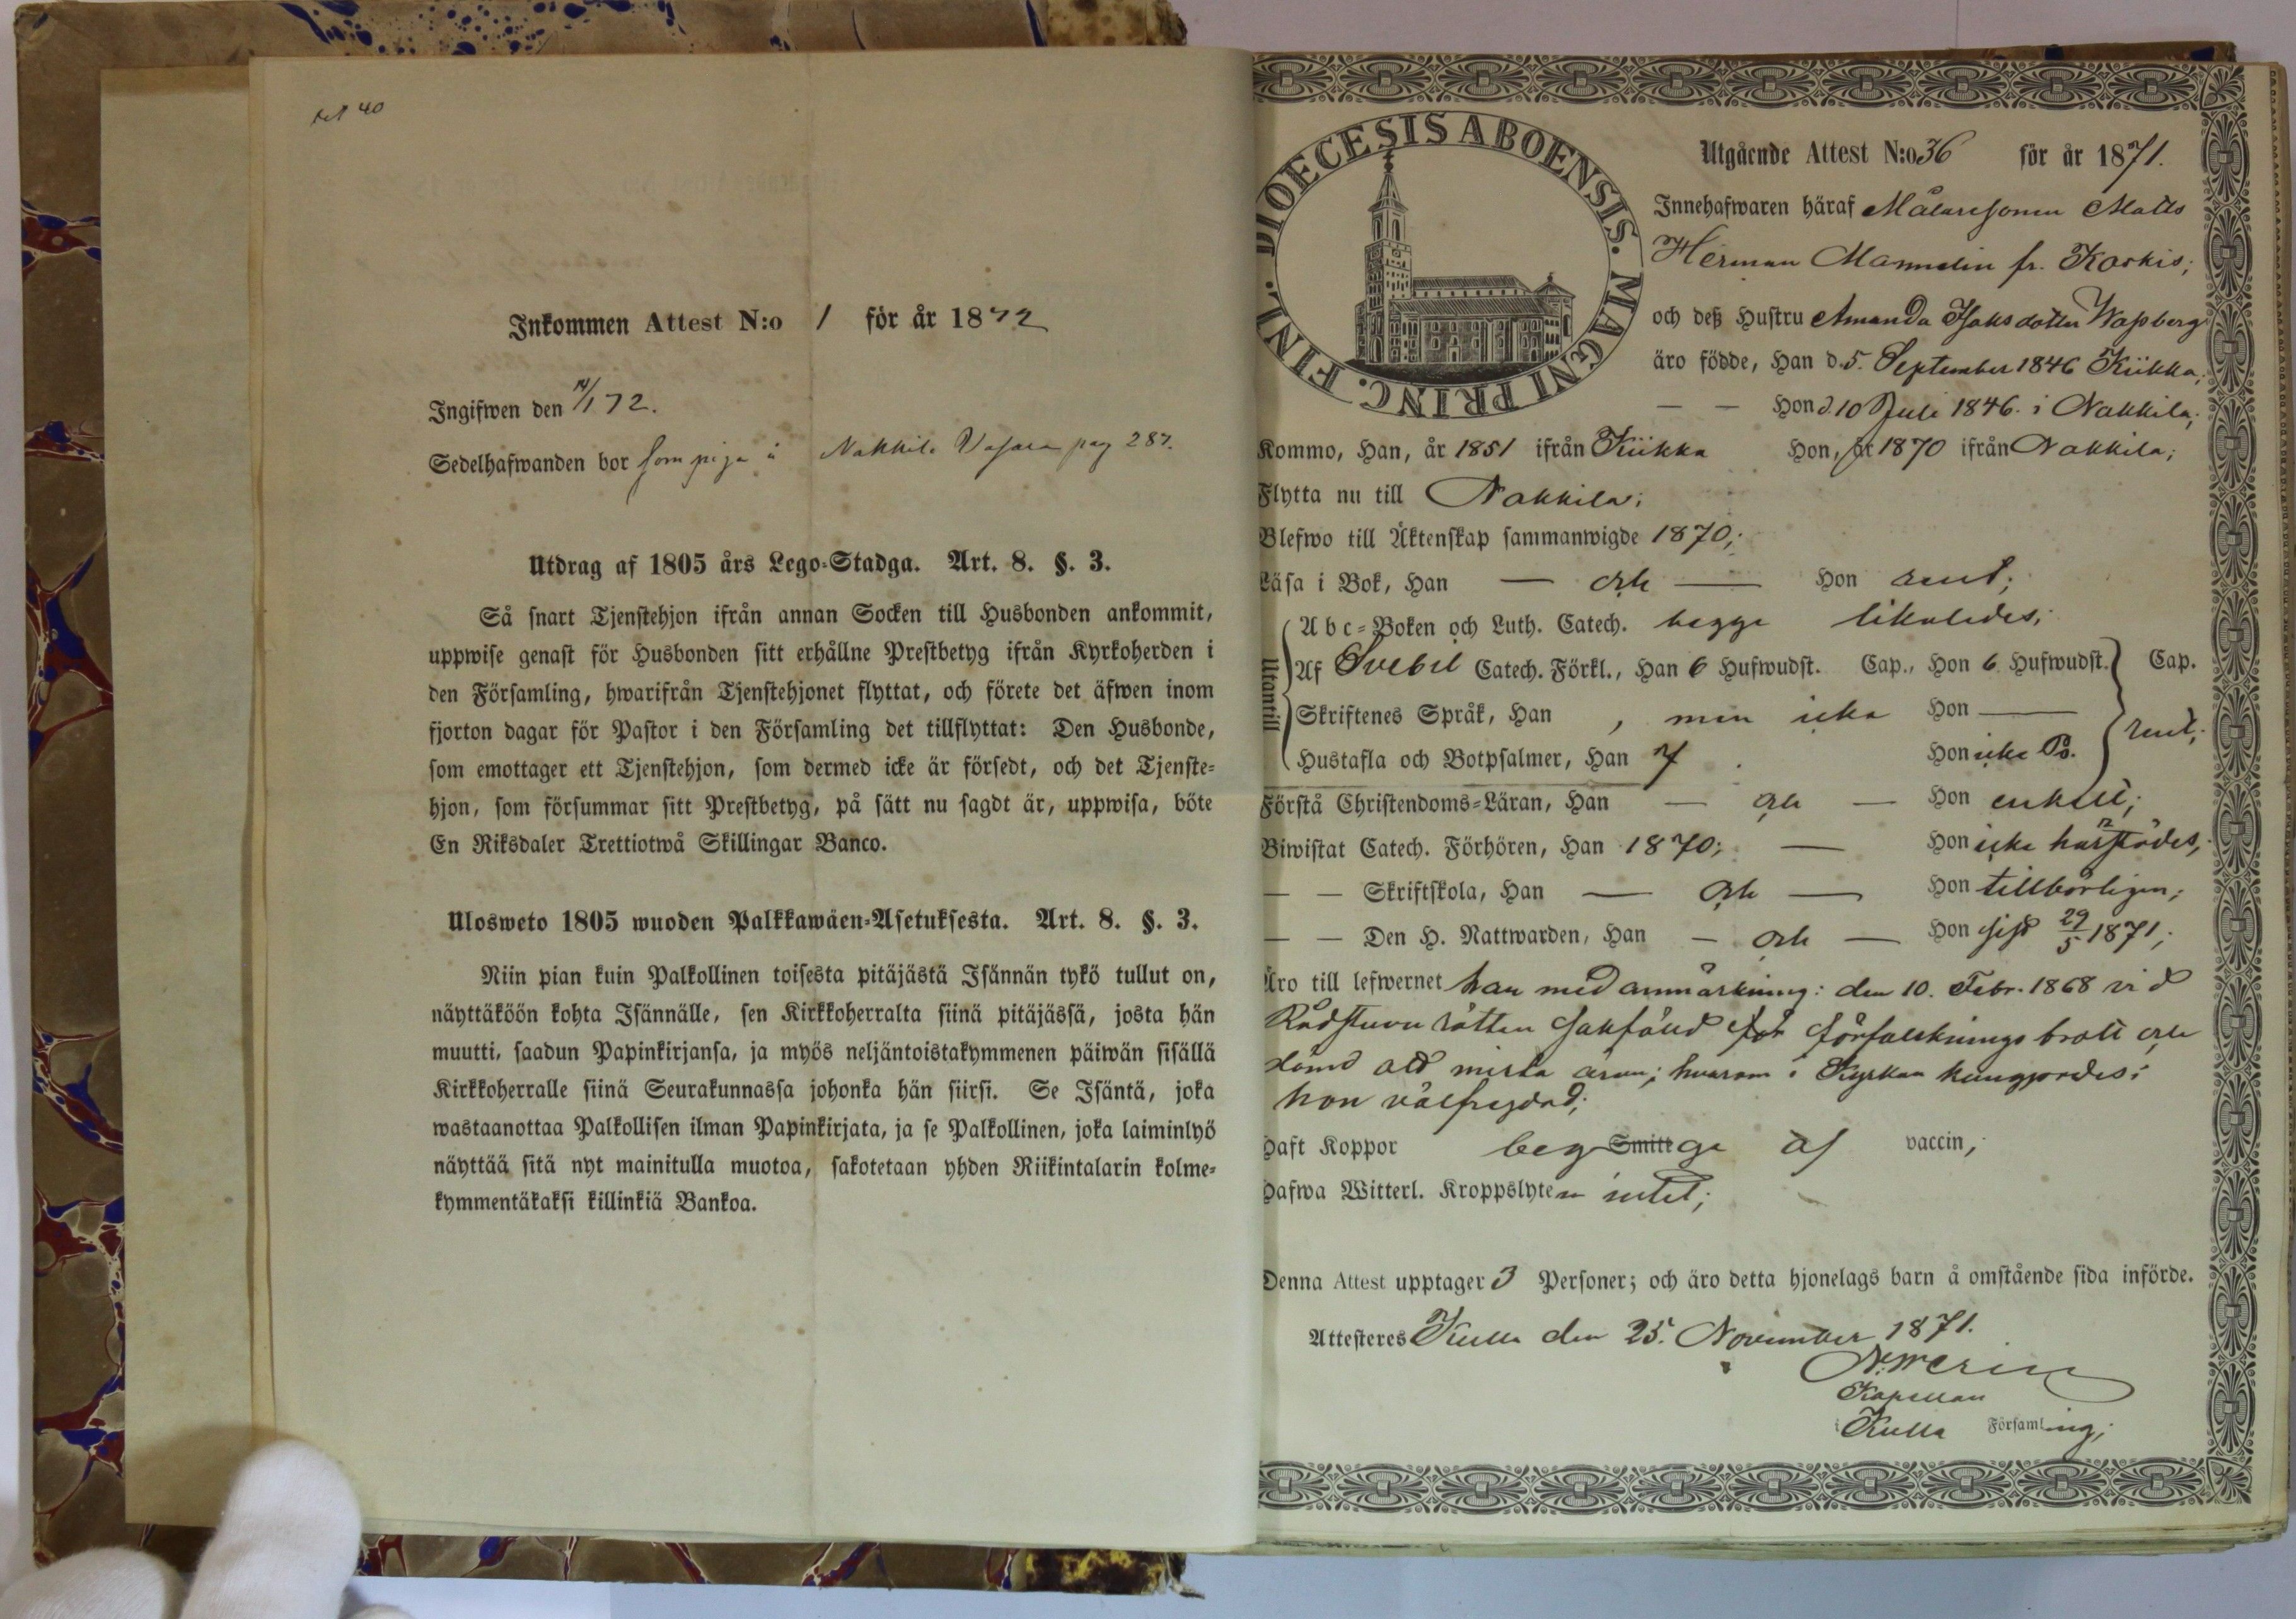 Inkommen Attest N:o 1 för år 1872
Ingifwen den 14/1 72.
Sedelhafwanden bor som piga å Nakkila Vasara pag 287.
Utdrag af 1805 års Lego-Stadga. Art. 8. §. 3.
Så snart Tjenstehjon ifrån annan Socken till Husbonden ankommit,
uppwise genast för Husbonden sitt erhållne Prestbetyg ifrån Kyrkoherden i
den Församling, hwarifrån Tjenstehjonet flyttat, och förete det äfwen inom
fjorton dagar för Pastor i den Församling det tillflyttat: Den Husbonde,
som emottager ett Tjenstehjon, som dermed icke är försedt, och det Tjenste-
hjon, som försummar sitt Prestbetyg, på sätt nu sagdt är, uppwisa, böte
En Riksdaler Trettiotwå Skillingar Banco.
Ulosweto 1805 wuoden Palkkawäen-Asetuksesta. Art. 8. §. 3.
Niin pian kuin Palkollinen toisesta pitäjästä Isännän tykö tullut on,
näyttäköön kohta Isännälle, sen Kirkkoherralta siinä pitäjässä, josta hän
muutti, saadun Papinkirjansa, ja myös neljäntoistakymmenen päiwän sisällä
Kirkkoherralle siinä Seurakunnassa johonka hän siirsi. Se Isäntä, joka
wastaanottaa Palkollisen ilman Papinkirjata, ja se Palkollinen, joka laiminlyö
näyttää sitä nyt mainitulla muotoa, sakotetaan yhden Riikintalarin kolme-
kymmentäkaksi killinkiä Bankoa.
DIOECESIS ABOENSIS. MAGNI PRINC. FINL.
Utgående Attest N:o 36 för år 1871.
Innehafwaren häraf Målaresonen Matts
Herman Mannelin fr. Koskis;
och deß Hustru Amanda Isaksdotter Wassberg
äro födde, Han d. 5. September 1846 Kiikka,
— — Hon d. 10 Juli 1846. i Nakkila;
Kommo, Han, år 1851 ifrån Kiikka Hon, år 1870 ifrån Nakkila;
Flytta nu till Nakkila;
Blefwo till Äktenskap sammanwigde 1870;
Läsa i Bok, Han — och — Hon rent;
Abc-Boken och Luth. Catech. begge likaledes;
Utantill
Af Svebil Catech. Förkl., Han 6 Hufwudst. Cap., Hon 6 Hufwudst. Cap.
Skriftenes Språk, Han , men icke Hon — rent;
Hustafla och Botpsalmer, Han 7 Hon icke Ps.
Förstå Christendoms-Läran, Han — och — Hon enkelt;
Biwistat Catech. Förhören, Han 1870; — Hon icke härstädes,
— — Skriftskola, Han — och — Hon tillbörligen;
— — Den H. Nattwarden, Han — och — Hon sist 29/5 1871;
Äro till lefwernet han med anmärkning: den 10. Febr. 1868 vid
Rådstuvu rätten sakfälld för förfalsknings brott och
dömd att mista äran; hvarom i Kyrkan kungjordes;
hon välfrejdad;
Haft Koppor begge af vaccin;
Hafwa Witterl. Kroppslyten intet;
Denna Attest upptager 3 Personer; och äro detta hjonelags barn å omstående sida införde.
Attesteres Kulla den 25. November 1871.
Kapellan
i Kulla Församling;